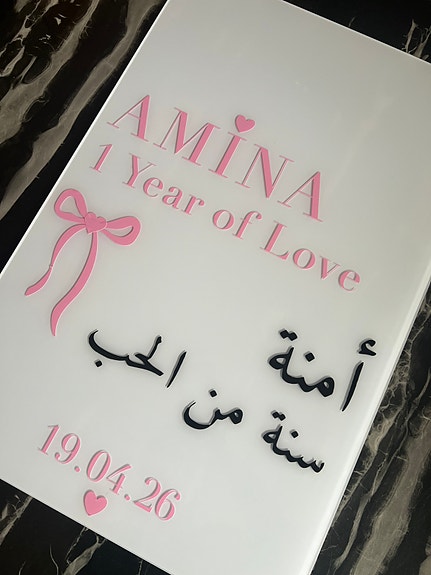 AMINA
1 Year of Love
أمنة
سنة من الحب
19.04.26